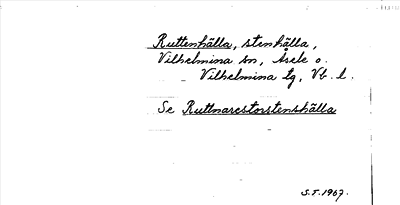 Ruttenhälla, stenhälla,
Vilhelmina sn, Åsele o.
Vilhelmina tg, Vb. l.
Se Ruttnarestorstenshälla
S.F. 1967.